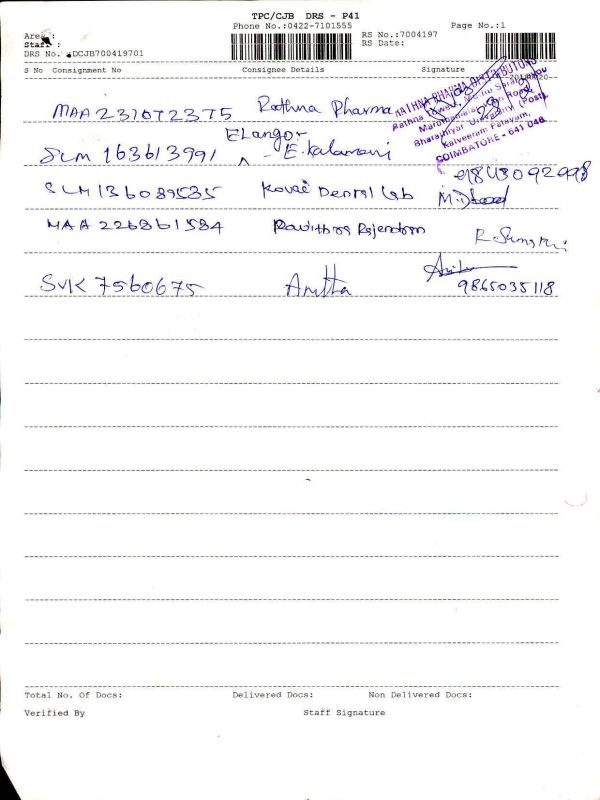 TPC/CJB DRS - P41
Phone No.:0422-7101555
Page No.:1
Area :
Staff :
RS No.:7004197
RS Date:
DRS No. DCJB700419701
S No Consignment No Consignee Details Signature
MAA 231072375 Rathna Pharma
RATHNA PHARMA DISTRIBUTORS
Bharathiyar University (Post),
Kalveeram Palayam,
COIMBATORE - 641 046
Elangor
SLM 163613991 E. Kalamani
9843092998
SLM 136089535 Kovai Dental Lab
MAA 226861584 Pavithra Rajendran
SVK 7560675 Anitha
9865035118
Total No. Of Docs: Delivered Docs: Non Delivered Docs:
Verified By Staff Signature